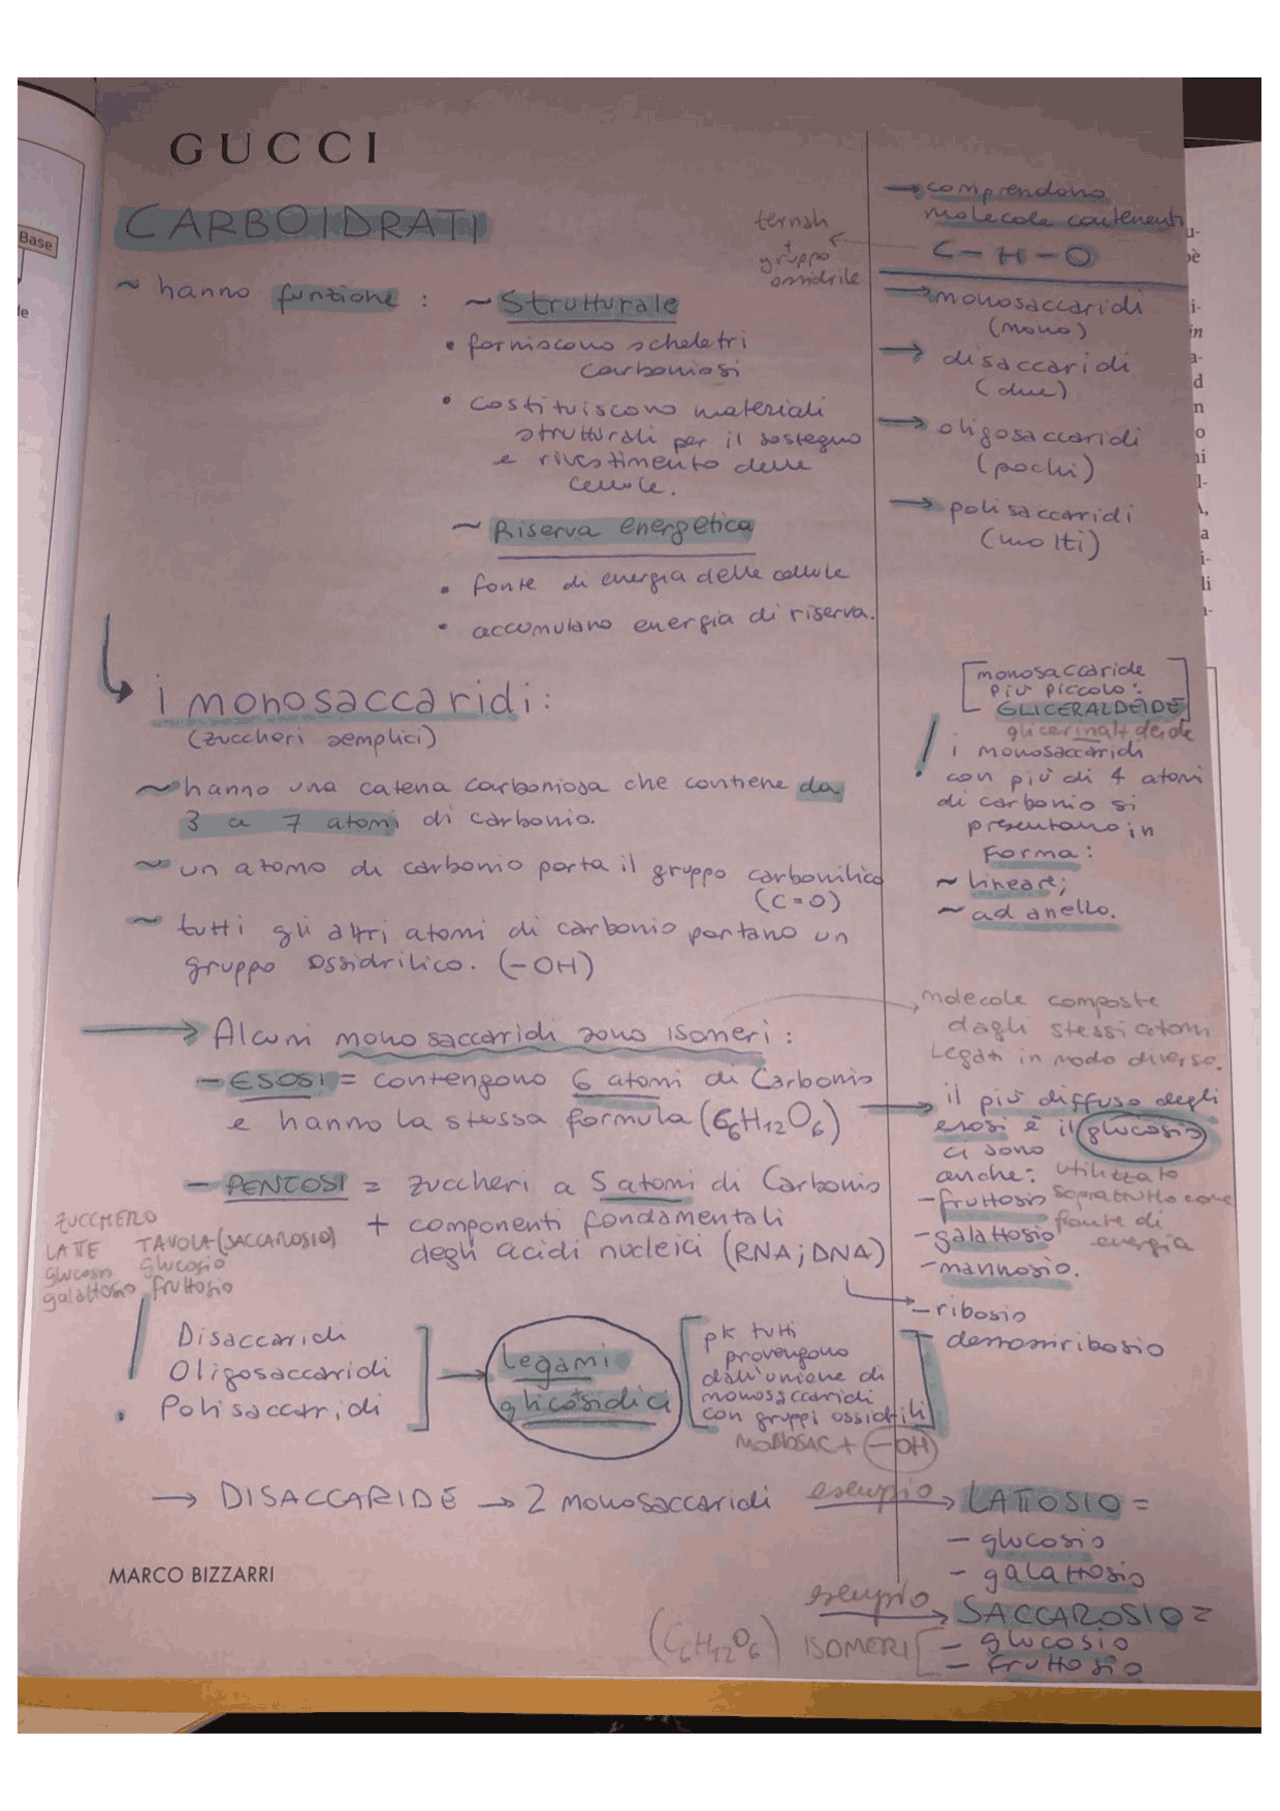 GUCCI
CARBOIDRATI
~ hanno funzione :
~ Strutturale
• forniscono scheletri
carboniosi
• costituiscono materiali
strutturali per il sostegno
e rivestimento delle
cellule.
~ Riserva energetica
• fonte di energia delle cellule
• accumulano energia di riserva.
→ comprendono
molecole contenenti
C-H-O
ternali
+
gruppo
ossidrile
→ monosaccaridi
(mono)
→ disaccaridi
(due)
→ oligosaccaridi
(pochi)
→ polisaccaridi
(molti)
i monosaccaridi:
(zuccheri semplici)
~ hanno una catena carboniosa che contiene da
3 a 7 atomi di carbonio.
~ un atomo di carbonio porta il gruppo carbonilico
(C=O)
~ tutti gli altri atomi di carbonio portano un
gruppo ossidrilico. (-OH)
[monosaccaride
più piccolo:
GLICERALDEIDE]
glicerinaldeide
! i monosaccaridi
con più di 4 atomi
di carbonio si
presentano in
forma:
~ lineare;
~ ad anello.
→ Alcuni monosaccaridi sono isomeri:
molecole composte
dagli stessi atomi
legati in modo diverso.
- ESOSI = contengono 6 atomi di Carbonio
e hanno la stessa formula (C6H12O6)
→ il più diffuso degli
esosi è il glucosio
ci sono
anche:
- fruttosio
- galattosio
- mannosio.
utilizzato
soprattutto come
fonte di
energia
- PENTOSI = zuccheri a 5 atomi di Carbonio
+ componenti fondamentali
degli acidi nucleici (RNA; DNA)
- ribosio
- desossiribosio
ZUCCHERO
LATTE TAVOLA (SACCAROSIO)
glucosio glucosio
galattosio fruttosio
! Disaccaridi
Oligosaccaridi
Polisaccaridi
] → legami
glicosidici
[pk tutti
provengono
dall'unione di
monosaccaridi
con gruppi ossidrili]
MONOSAC + (-OH)
→ DISACCARIDE → 2 monosaccaridi esempio → LATTOSIO =
- glucosio
- galattosio
MARCO BIZZARRI
esempio → SACCAROSIO =
(C6H12O6) ISOMERI [- glucosio
- fruttosio
Base